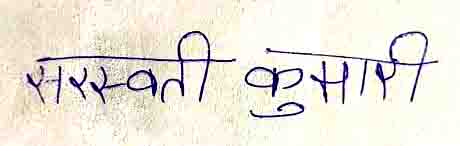 सरस्वती कुमारी